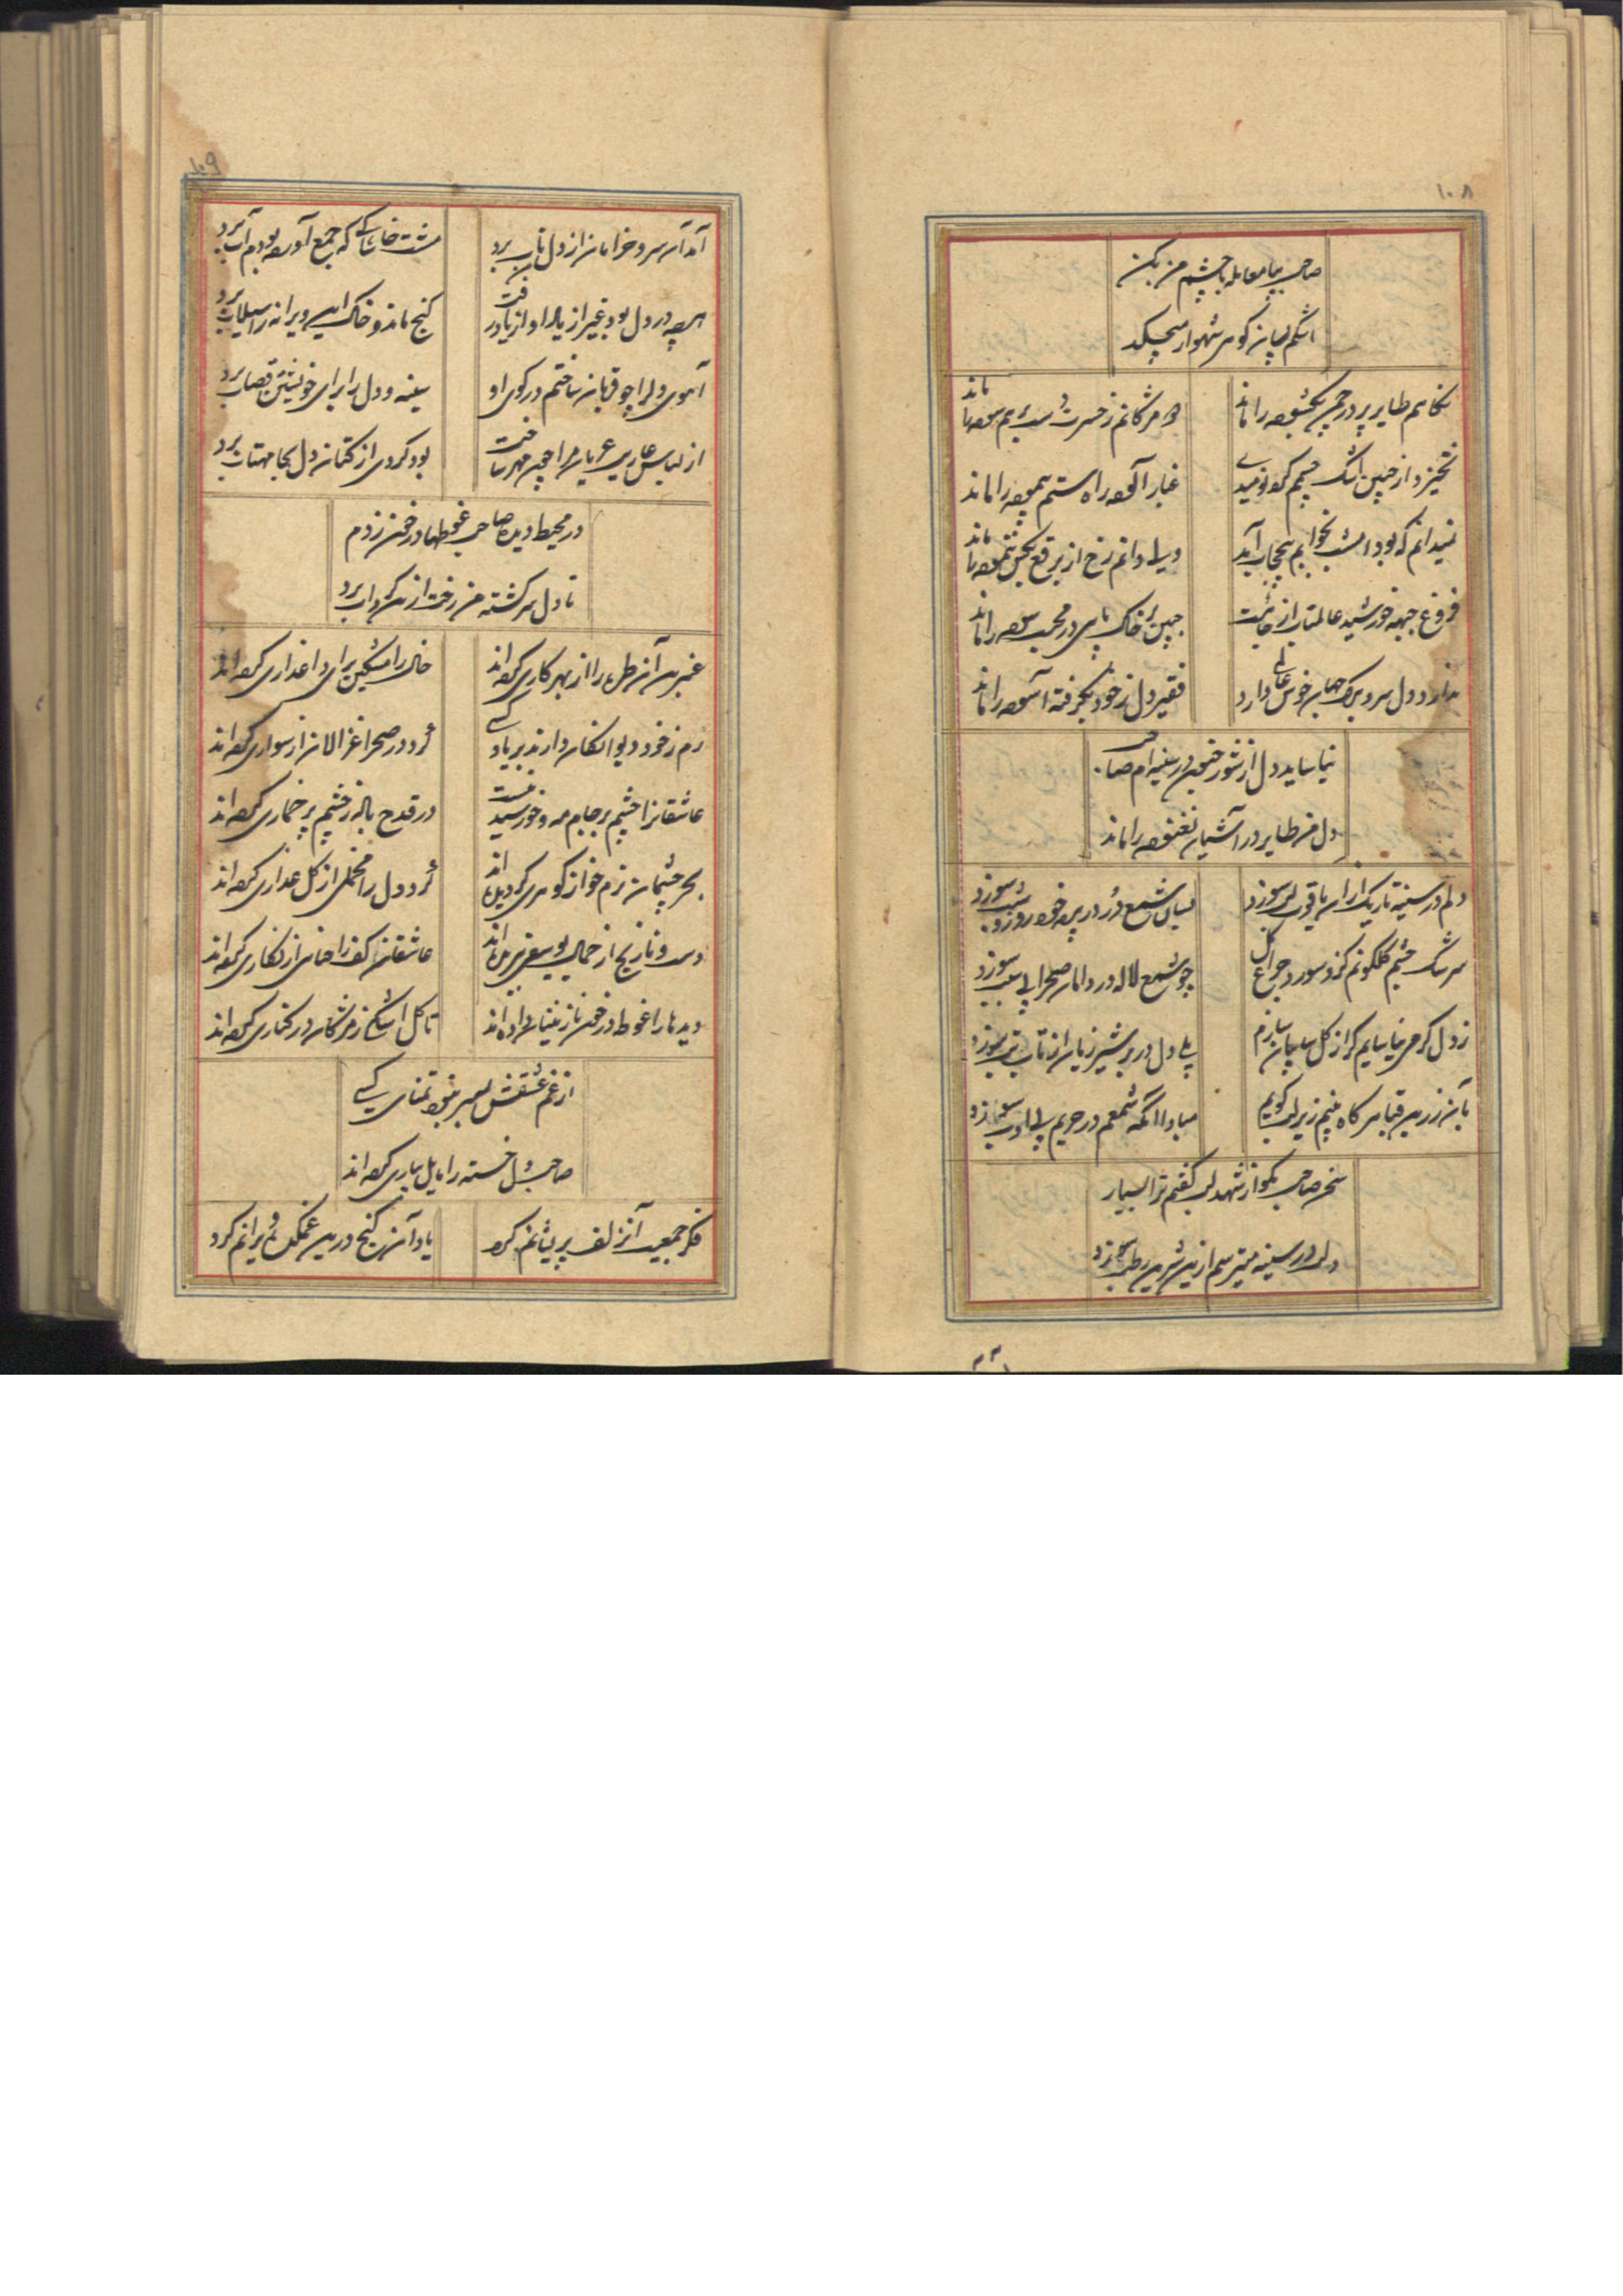 ۱۰۸
صاحب بیا معامله با چشم من بکن
اشکم بسان گوهر شهوار میچکد
نگاهم طایر پر در چمن نگشوده را ماند
ز حسرت بهم سوده را ماند
نخیزد از جبین اشک چشمم گرد نومیدی
غبار آلوده راه ستم پیموده را ماند
نمیدانم که بود امشب بخوابم بیحجاب آمد
ولی دانم رخ از برقع بکس ننموده را ماند
فروغ جبهه خورشید عالمتاب از جائیست
جبین بر خاک پای در محبت سوده را ماند
ندارد دل سر و برگ جهان خوش عالمی دارد
فقیر دل ز خود بگرفته آسوده را ماند
نیاساید دل از شور جنون در سینه ام صاحب
دل من طایر در آشیان نغنوده را ماند
دلم در سینه تاریک از آن یاقوت لب سوزد
بسان شمع در پرده خود روز و شب سوزد
سرشک چشم گلگونم گزد سوزد چراغ گل
چو شمع لاله در دامان صحرا بی سبب سوزد
ز دل گرمی نیاسایم گر از گل سایبان سازم
بلی دل در بر شیر ژیان از تاب تب سوزد
بآن زرین قبا هر گاه بینم زیر لب گویم
مبادا آنکه شمعم در حریم بی ادب سوزد
سخن صاحب مگو از شهد لب گفتم ترا بسیار
دلت در سینه میترسم ازین شیرین رطب سوزد
۱۰۹
آمد آن سرو خرامان از دل تاب برد
مشت خاشاکی که جمع آورده بودم آب برد
هر چه در دل بود غیر از یاد او از یاد رفت
گنج ماند و خاک این ویرانه را سیلاب برد
آهوی دل را چو قربان ساختم در کوی او
سینه و دل را برای خویشتن قصاب برد
از لباس عاریت عریان مرا چون مهر ساخت
بود گردی از کتان دل بجا مهتاب برد
در محیط دیده صاحب غوطها در خون زدم
تا دل سرگشته من رخت ازین گرداب برد
عنبرین آن طره را از بهر کاری کرده اند
خال را مشکین برای داغداری کرده اند
رم ز خود دیوانگان دارند بر یاد کسی
گرد در صحرا غزالان از سواری کرده اند
عاشقانرا چشم بر جام مه و خورشید نیست
در قدح باده ز چشم پر خماری کرده اند
بحر چشمان نرم خو از گوهری گردیده اند
گرد دل را مخملی از گل عذاری کرده اند
دست و نارنج از جمال یوسفی ببریده اند
عاشقان کف را حنائی از نگاری کرده اند
دیدها را غوطه در خون نازنینان داده اند
تا گل اشکی ز مژگان در کناری کرده اند
از غم عشقش بسر نبود تمنای کسی
صاحب دل خسته را مایل بیاری کرده اند
فکر جمعیت آن زلف پریشانم کرد
یاد آن گنج درین غمکده ویرانم کرد